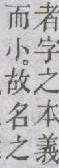 者字之本義
而小。故名之